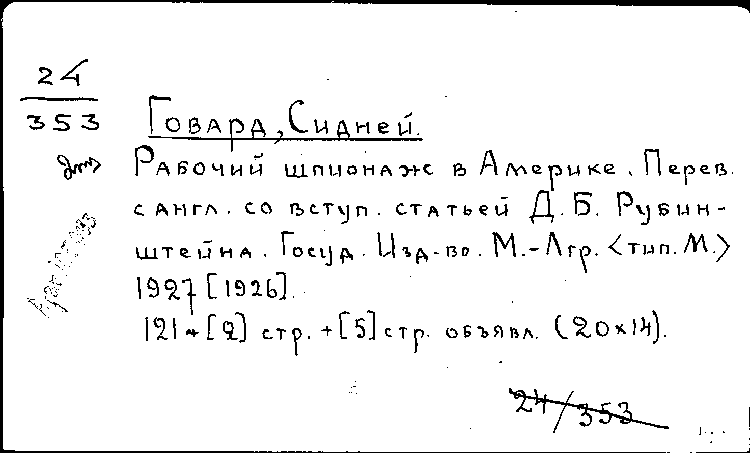 24
353
Говард, Сидней.
Рабочий шпионаж в Америке. Перев.
с англ. со вступ. статьей Д. Б. Рубин-
штейна. Госуд. Изд-во. М.-Лгр. <тип. М.>
1927 [1926].
121+[2] стр. +[5] стр. объявл. (20×14).
24/353